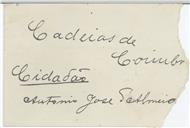 Cadeias de
Coimbr
Cidadão
Antonio Jose d'Almeid